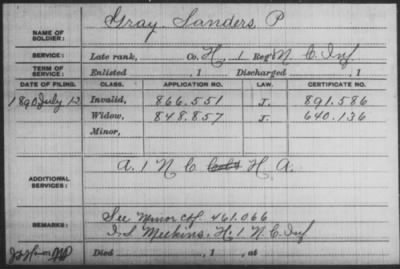 Gray, Sanders P
NAME OF SOLDIER:
SERVICE: Late rank, Co. H, 1 Reg't N. C. Inf
TERM OF SERVICE: Enlisted , 1 Discharged , 1
DATE OF FILING. CLASS. APPLICATION NO. LAW. CERTIFICATE NO.
1890 July 12 Invalid, 866.551 J. 891.586
Widow, 848.857 J. 640.136
Minor,
ADDITIONAL SERVICES: A. 1 N C H. A.
REMARKS: See Minor Ctf 461.066
I. S. Meekins, H, 1 N. C. Inf
Died , 1 , at